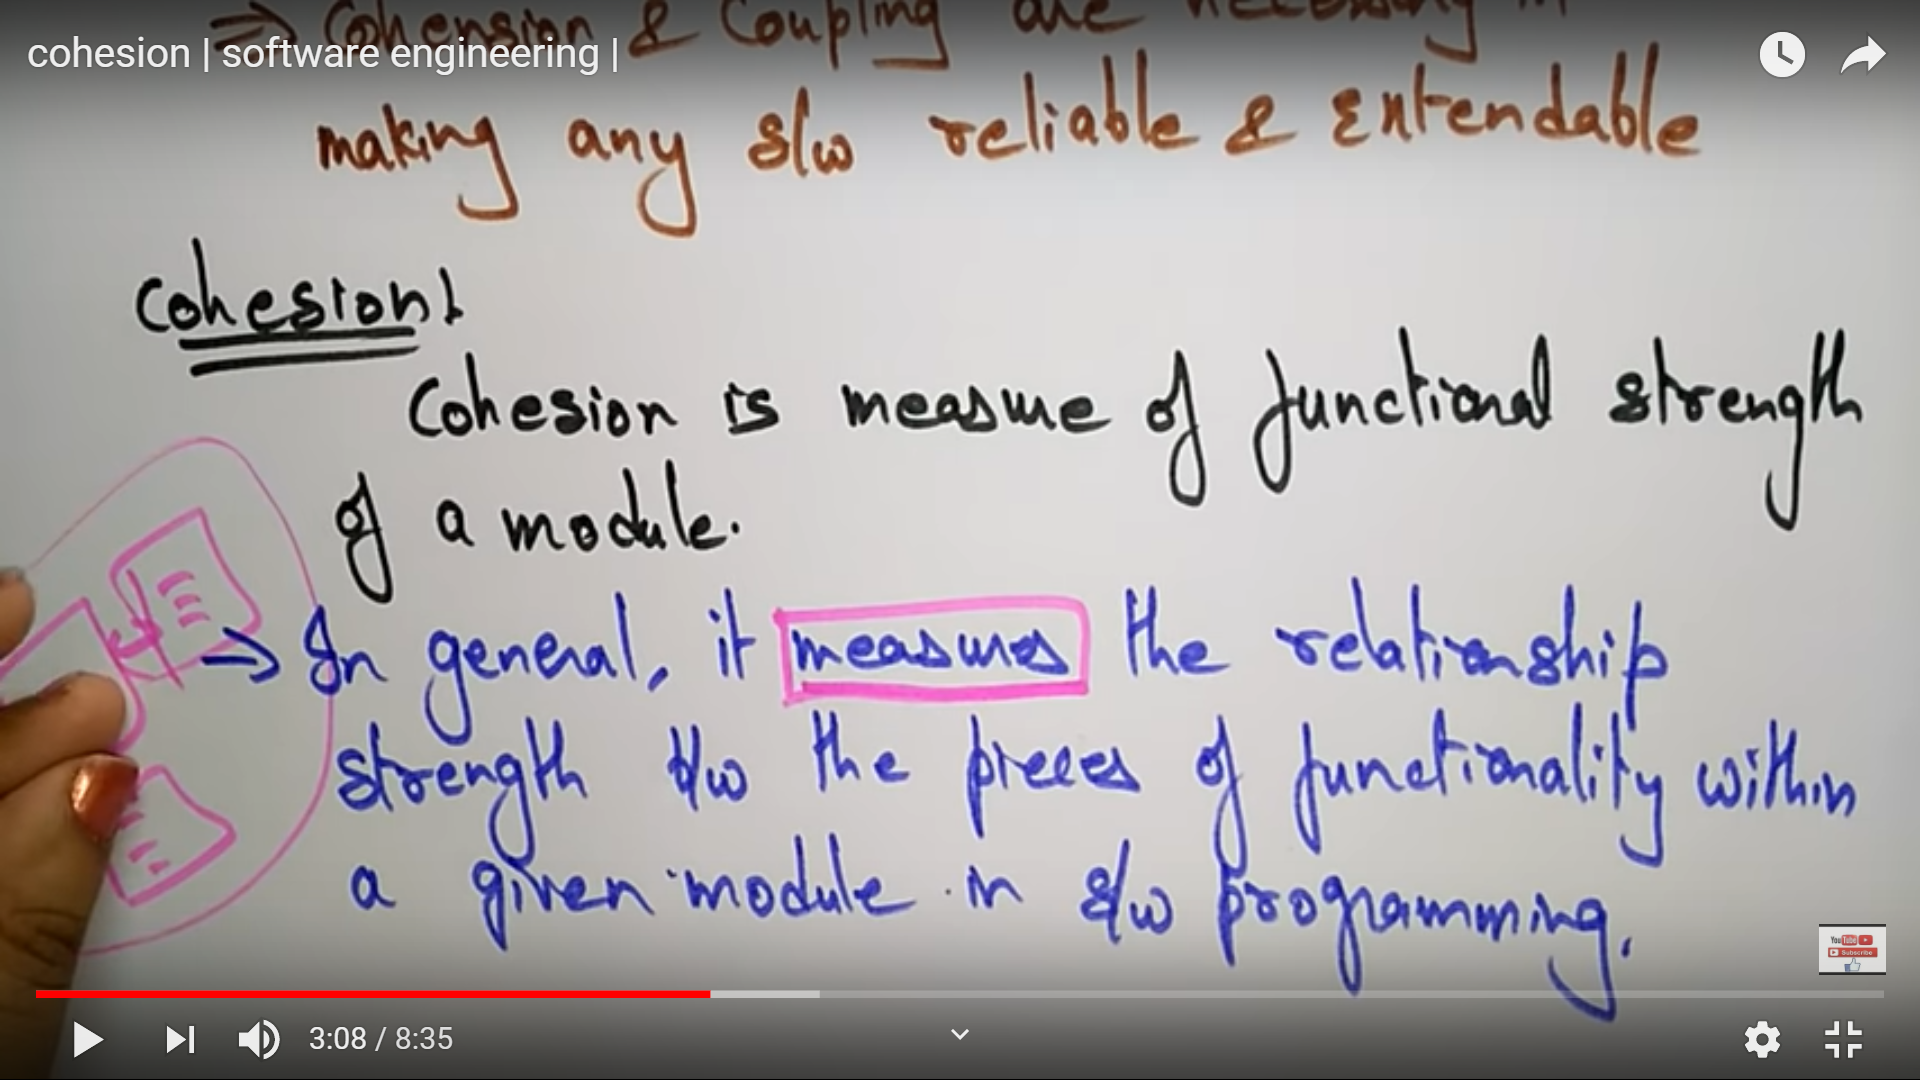 ⇒ Cohension & Coupling are necessary in
cohesion | software engineering |
making any s/w reliable & Extendable
Cohesion:
Cohesion is measure of functional strength
of a module.
→ In general, it measures the relationship
strength b/w the pieces of functionality within
a given module in s/w programming.
YouTube
Subscribe
3:08 / 8:35